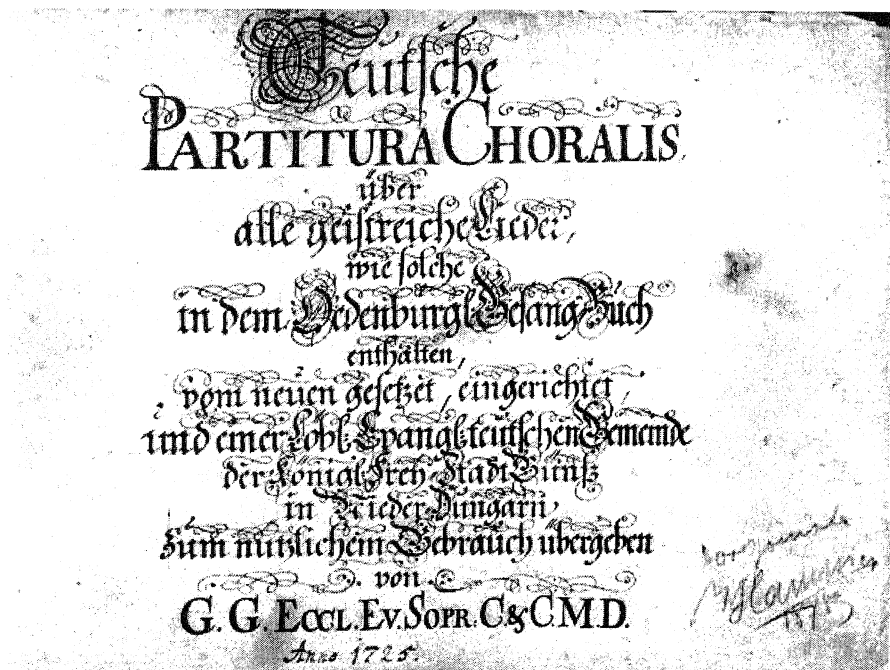 Teutsche
PARTITURA CHORALIS,
über
alle geistreiche Lieder,
wie solche
in dem Oedenburgl: Gesang-Buch
enthalten,
vom neuen gesetzet, eingerichtet,
und einer Löbl: Evangl: teutschen Gemeinde
der Königl: Frey Stadt Günß
in Nieder Hungarn,
zum nützlichem Gebrauch übergeben
von
G. G. ECCL. EV. SOPR. C. & C. M. D.
Anno 1725.